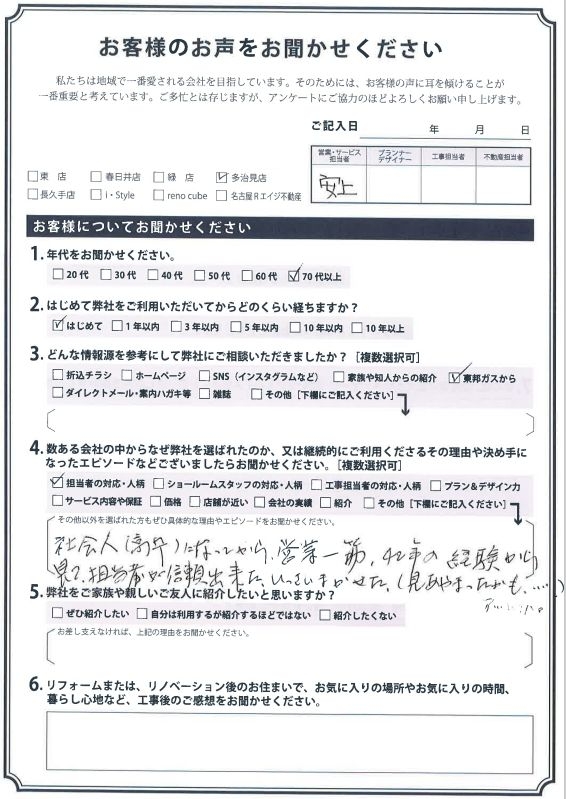 お客様のお声をお聞かせください
私たちは地域で一番愛される会社を目指しています。そのためには、お客様の声に耳を傾けることが
一番重要と考えています。ご多忙とは存じますが、アンケートにご協力のほどよろしくお願い申し上げます。
ご記入日 年 月 日
営業・サービス担当者 プランナーデザイナー 工事担当者 不動産担当者
安上
□東 店 □春日井店 □緑 店 ☑多治見店
□長久手店 □i・Style □reno cube □名古屋Rエイジ不動産
お客様についてお聞かせください
1. 年代をお聞かせください。
□20代 □30代 □40代 □50代 □60代 ☑70代以上
2. はじめて弊社をご利用いただいてからどのくらい経ちますか？
☑はじめて □1年以内 □3年以内 □5年以内 □10年以内 □10年以上
3. どんな情報源を参考にして弊社にご相談いただきましたか？［複数選択可］
□折込チラシ □ホームページ □SNS（インスタグラムなど） □家族や知人からの紹介 ☑東邦ガスから
□ダイレクトメール・案内ハガキ等 □雑誌 □その他［下欄にご記入ください］
4. 数ある会社の中からなぜ弊社を選ばれたのか、又は継続的にご利用くださるその理由や決め手に
なったエピソードなどございましたらお聞かせください。［複数選択可］
☑担当者の対応・人柄 □ショールームスタッフの対応・人柄 □工事担当者の対応・人柄 □プラン＆デザイン力
□サービス内容や保証 □価格 □店舗が近い □会社の実績 □紹介 □その他［下欄にご記入ください］
その他以外を選ばれた方もぜひ具体的な理由やエピソードをお聞かせください。
社会人（高卒）になってから、営業一筋、42年の経験から
見て、担当者が信頼出来た、いっさいまかせた、（見あやまったかも、……）
5. 弊社をご家族や親しいご友人に紹介したいと思いますか？
□ぜひ紹介したい □自分は利用するが紹介するほどではない □紹介したくない
お差し支えなければ、上記の理由をお聞かせください。
6. リフォームまたは、リノベーション後のお住まいで、お気に入りの場所やお気に入りの時間、
暮らし心地など、工事後のご感想をお聞かせください。